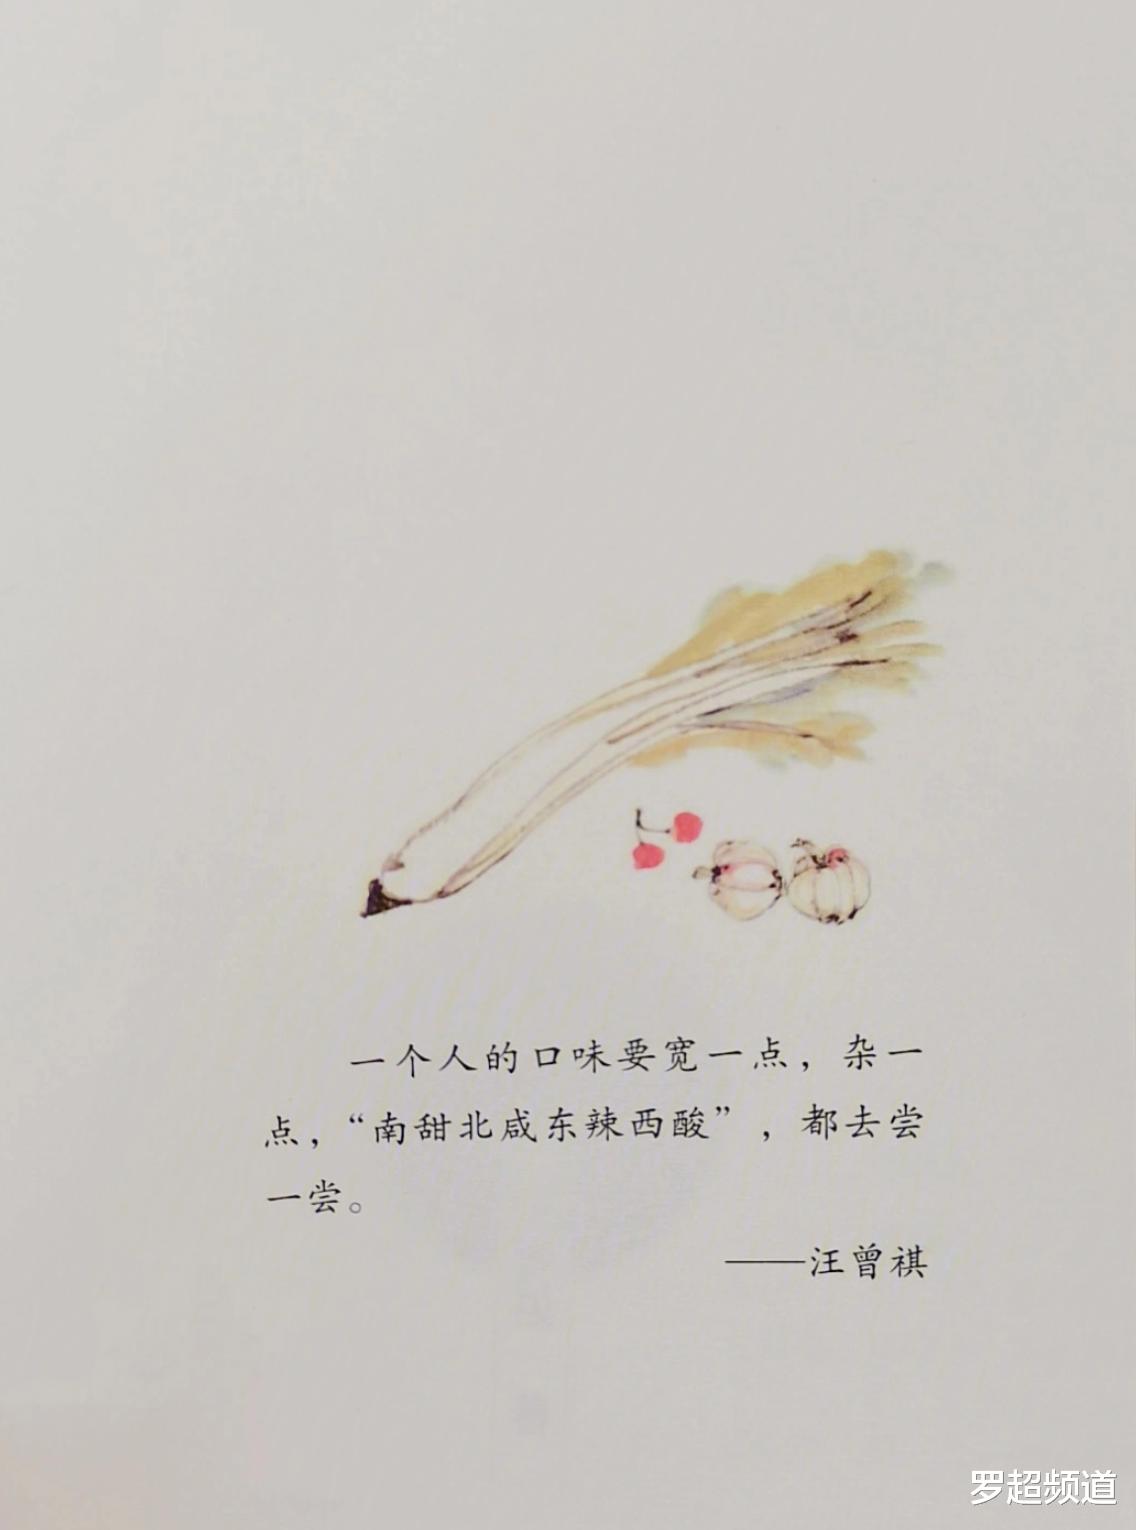 一个人的口味要宽一点，杂一
点，“南甜北咸东辣西酸”，都去尝
一尝。
——汪曾祺
罗超频道